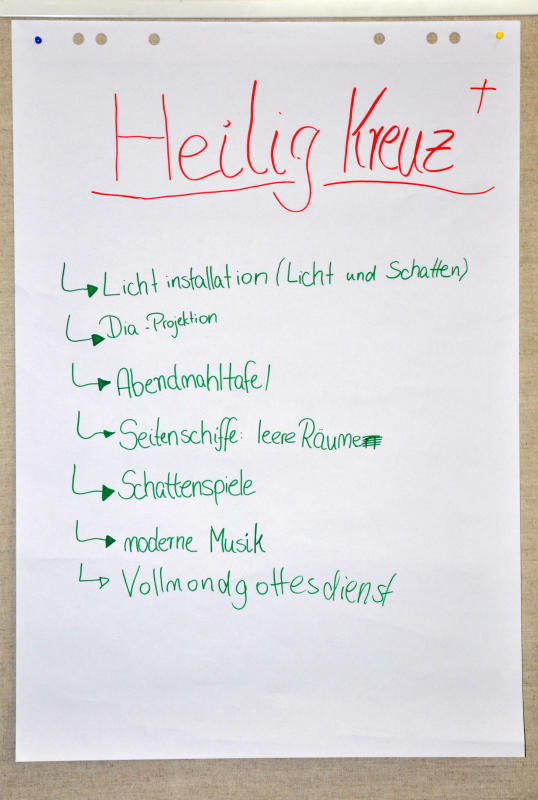 Heilig Kreuz
Licht installation (Licht und Schatten)
Dia-Projektion
Abendmahltafel
Seitenschiffe: leere Räume
Schattenspiele
moderne Musik
Vollmondgottesdienst